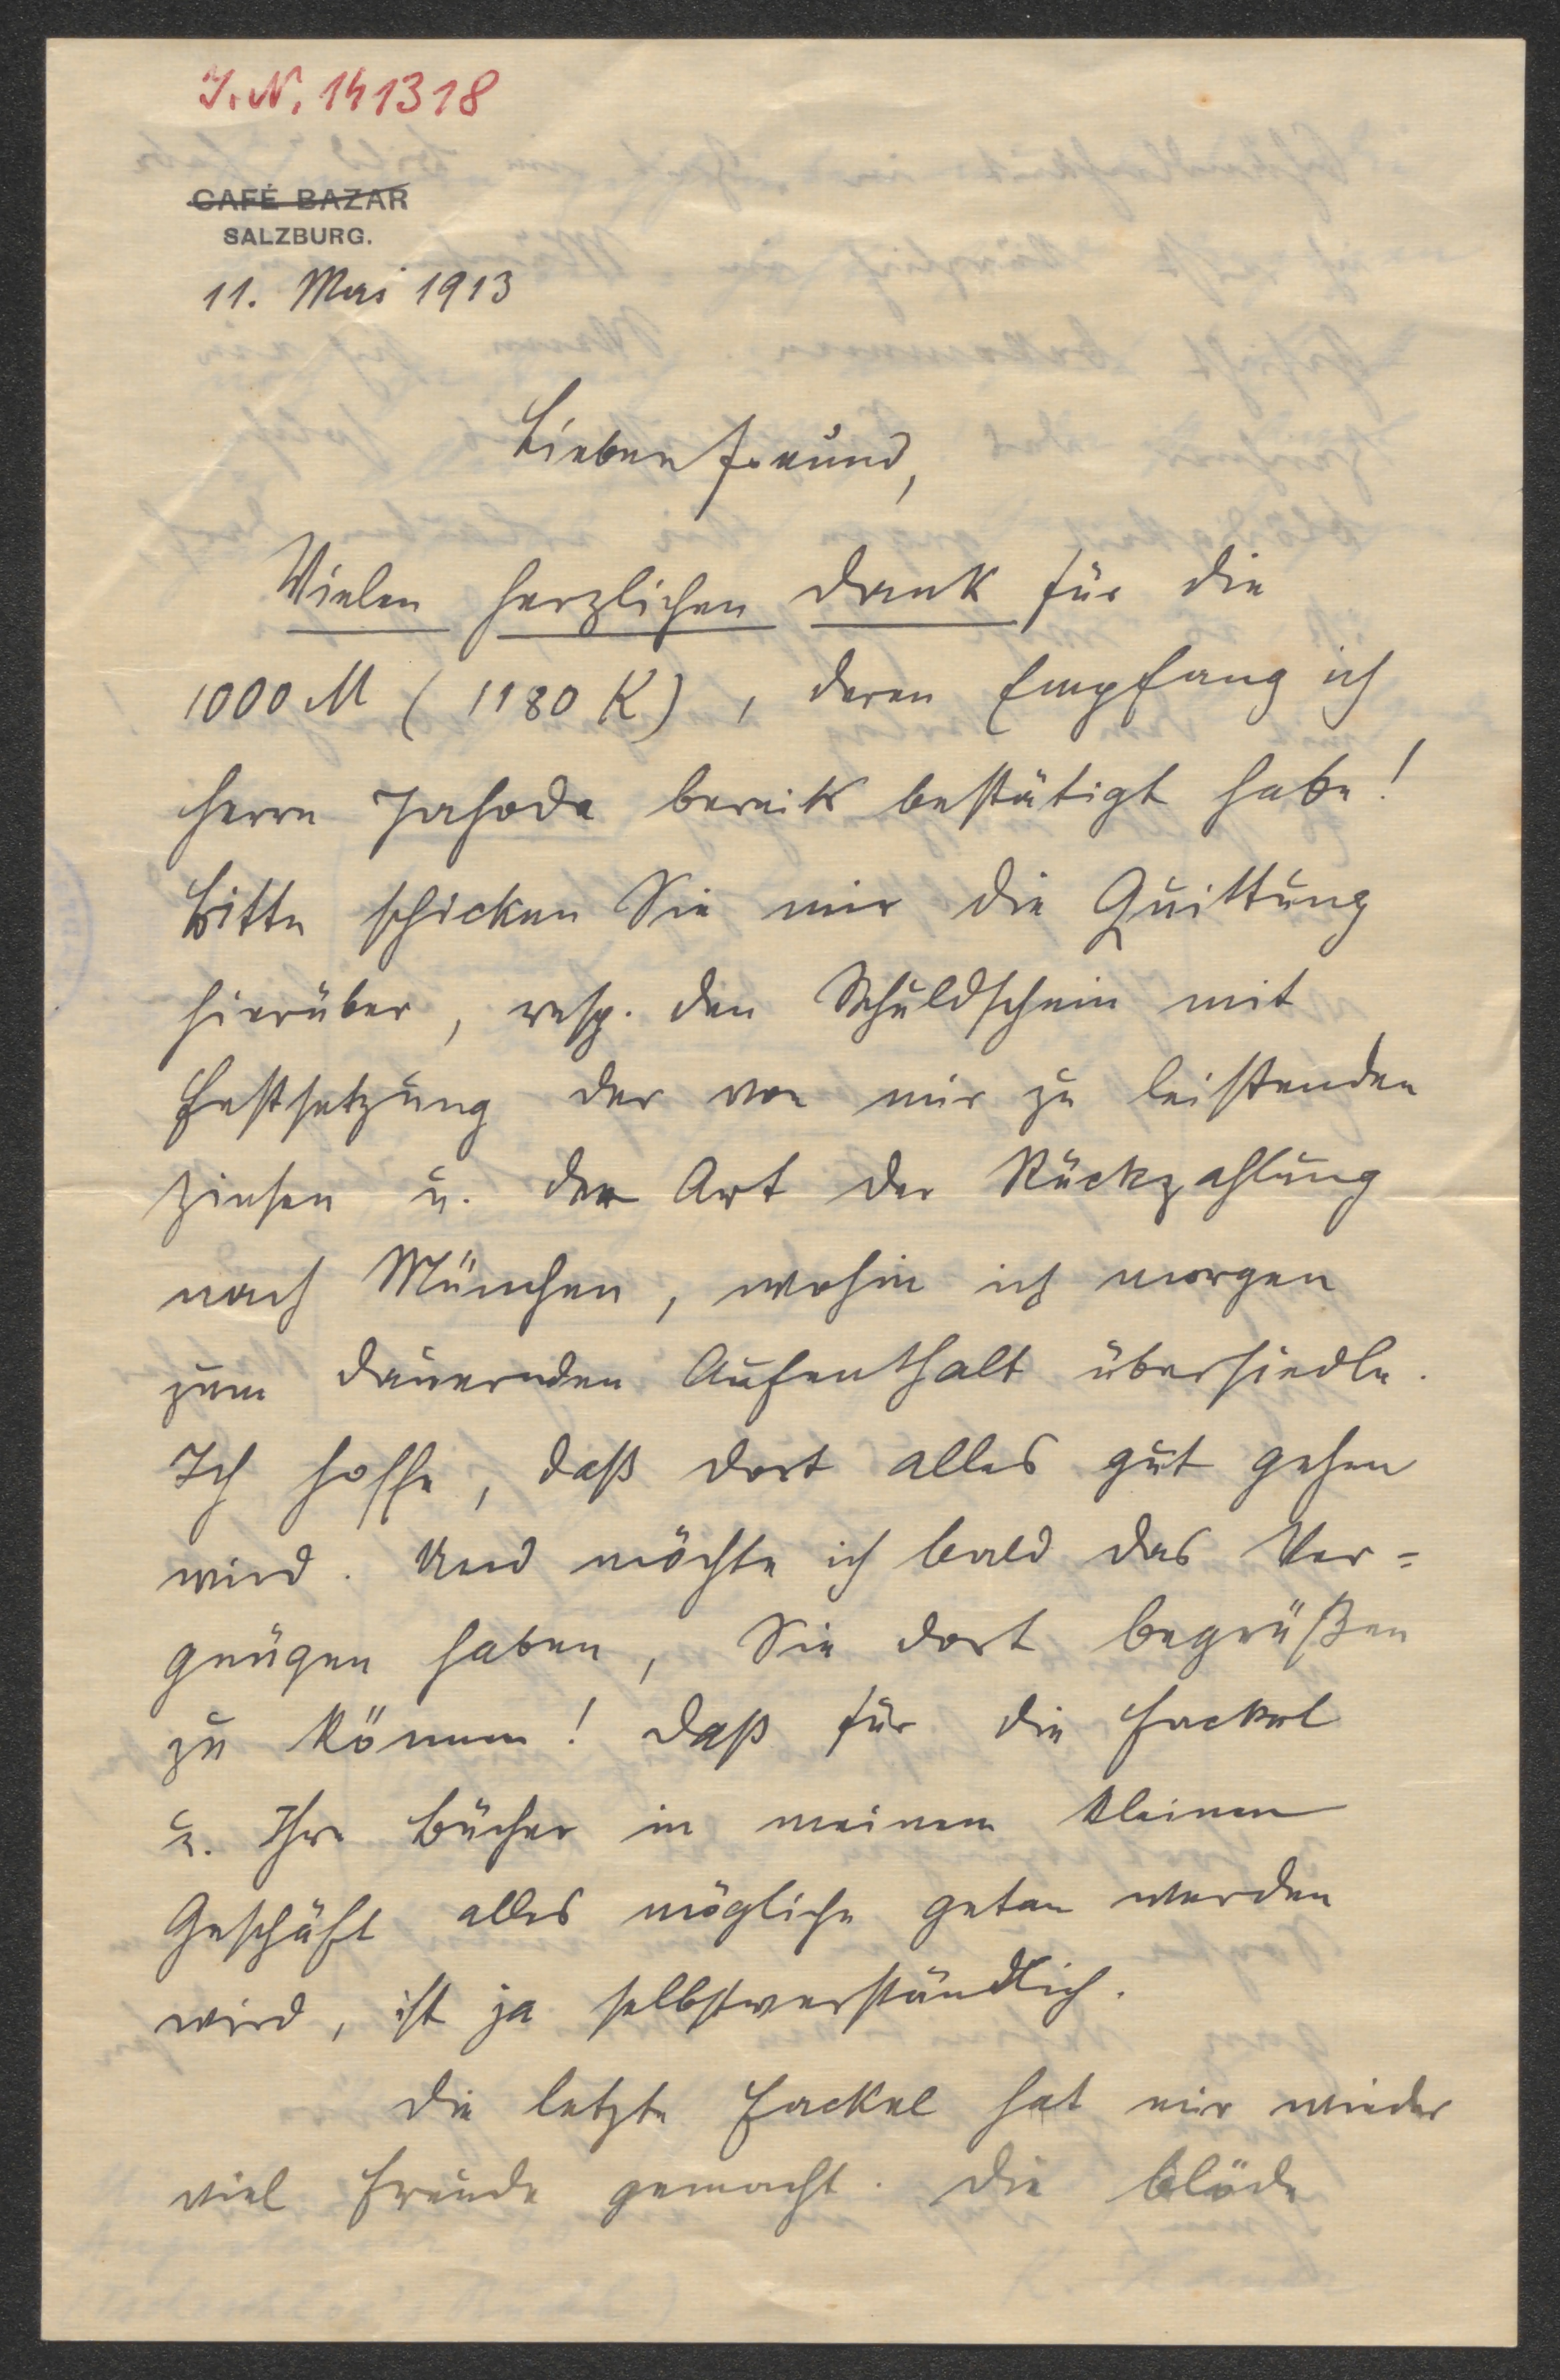 I.N. 141318
CAFÉ BAZAR
SALZBURG.
11. Mai 1913
Lieber Freund,
Vielen herzlichen Dank für die
1000 M (1180 K), deren Empfang ich
Herrn Jahoda bereits bestätigt habe!
Bitte schicken Sie mir die Quittung
hierüber, resp. den Schuldschein mit
Festsetzung der von mir zu leistenden
Zinsen u. der Art der Rückzahlung
nach München, wohin ich morgen
zum dauernden Aufenthalt übersiedle.
Ich hoffe, daß dort alles gut gehen
wird. Und möchte ich bald das Ver=
gnügen haben, Sie dort begrüßen
zu können! Daß für die Fackel
u. Ihre Bücher in meinem kleinen
Geschäft alles mögliche getan werden
wird, ist ja selbstverständlich.
Die letzte Fackel hat mir wieder
viel Freude gemacht. Die blöde